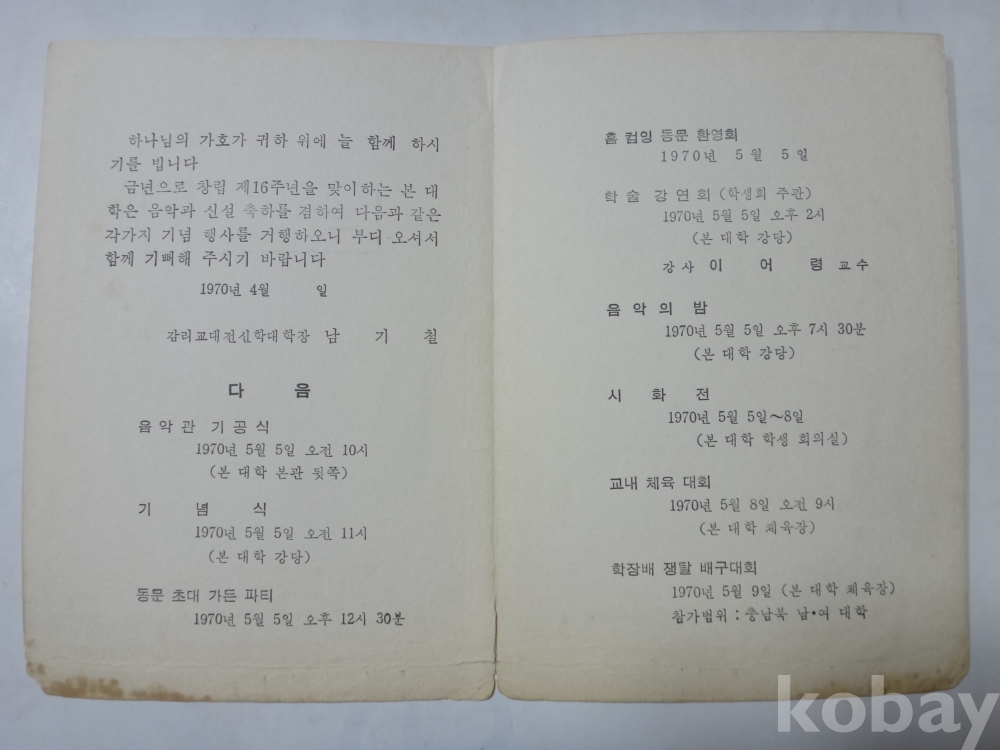 하나님의 가호가 귀하 위에 늘 함께 하시
기를 빕니다
금년으로 창립 제16주년을 맞이하는 본 대
학은 음악과 신설 축하를 겸하여 다음과 같은
각가지 기념 행사를 거행하오니 부디 오셔서
함께 기뻐해 주시기 바랍니다
1970년 4월 일
감리교대전신학대학장 남 기 철
다 음
음악관 기공식
1970년 5월 5일 오전 10시
(본 대학 본관 뒷쪽)
기 념 식
1970년 5월 5일 오전 11시
(본 대학 강당)
동문 초대 가든 파티
1970년 5월 5일 오후 12시 30분
홈 컴잉 동문 환영회
1970년 5월 5일
학술 강연회 (학생회 주관)
1970년 5월 5일 오후 2시
(본 대학 강당)
강사 이 어 령 교수
음악의 밤
1970년 5월 5일 오후 7시 30분
(본 대학 강당)
시 화 전
1970년 5월 5일~8일
(본 대학 학생 회의실)
교내 체육 대회
1970년 5월 8일 오전 9시
(본 대학 체육장)
학장배 쟁탈 배구대회
1970년 5월 9일 (본 대학 체육장)
참가범위 : 충남북 남•여 대학
kobay